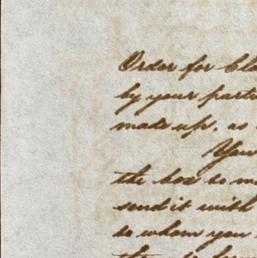 Order for Cla
by your parti
made up, as
You
the box to m
send it with
to whom you